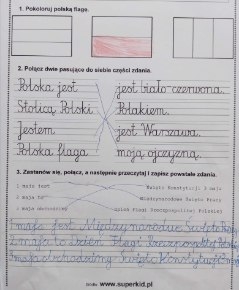 1. Pokoloruj polską flagę.
2. Połącz dwie pasujące do siebie części zdania.
Polska jest jest biało-czerwona.
Stolicą Polski Polakiem.
Jestem jest Warszawa.
Polska flaga moją ojczyzną.
3. Zastanów się, połącz, a następnie przeczytaj i zapisz powstałe zdania.
1 maja jest Święto Konstytucji 3 maja
2 maja to Międzynarodowe Święto Pracy
3 maja obchodzimy Dzień Flagi Rzeczypospolitej Polskiej
1 maja jest Międzynarodowe Święto
2 maja to Dzień Flagi Rzeczypospolitej
3 maja obchodzimy Święto Konstytucji
źródło: www.superkid.pl